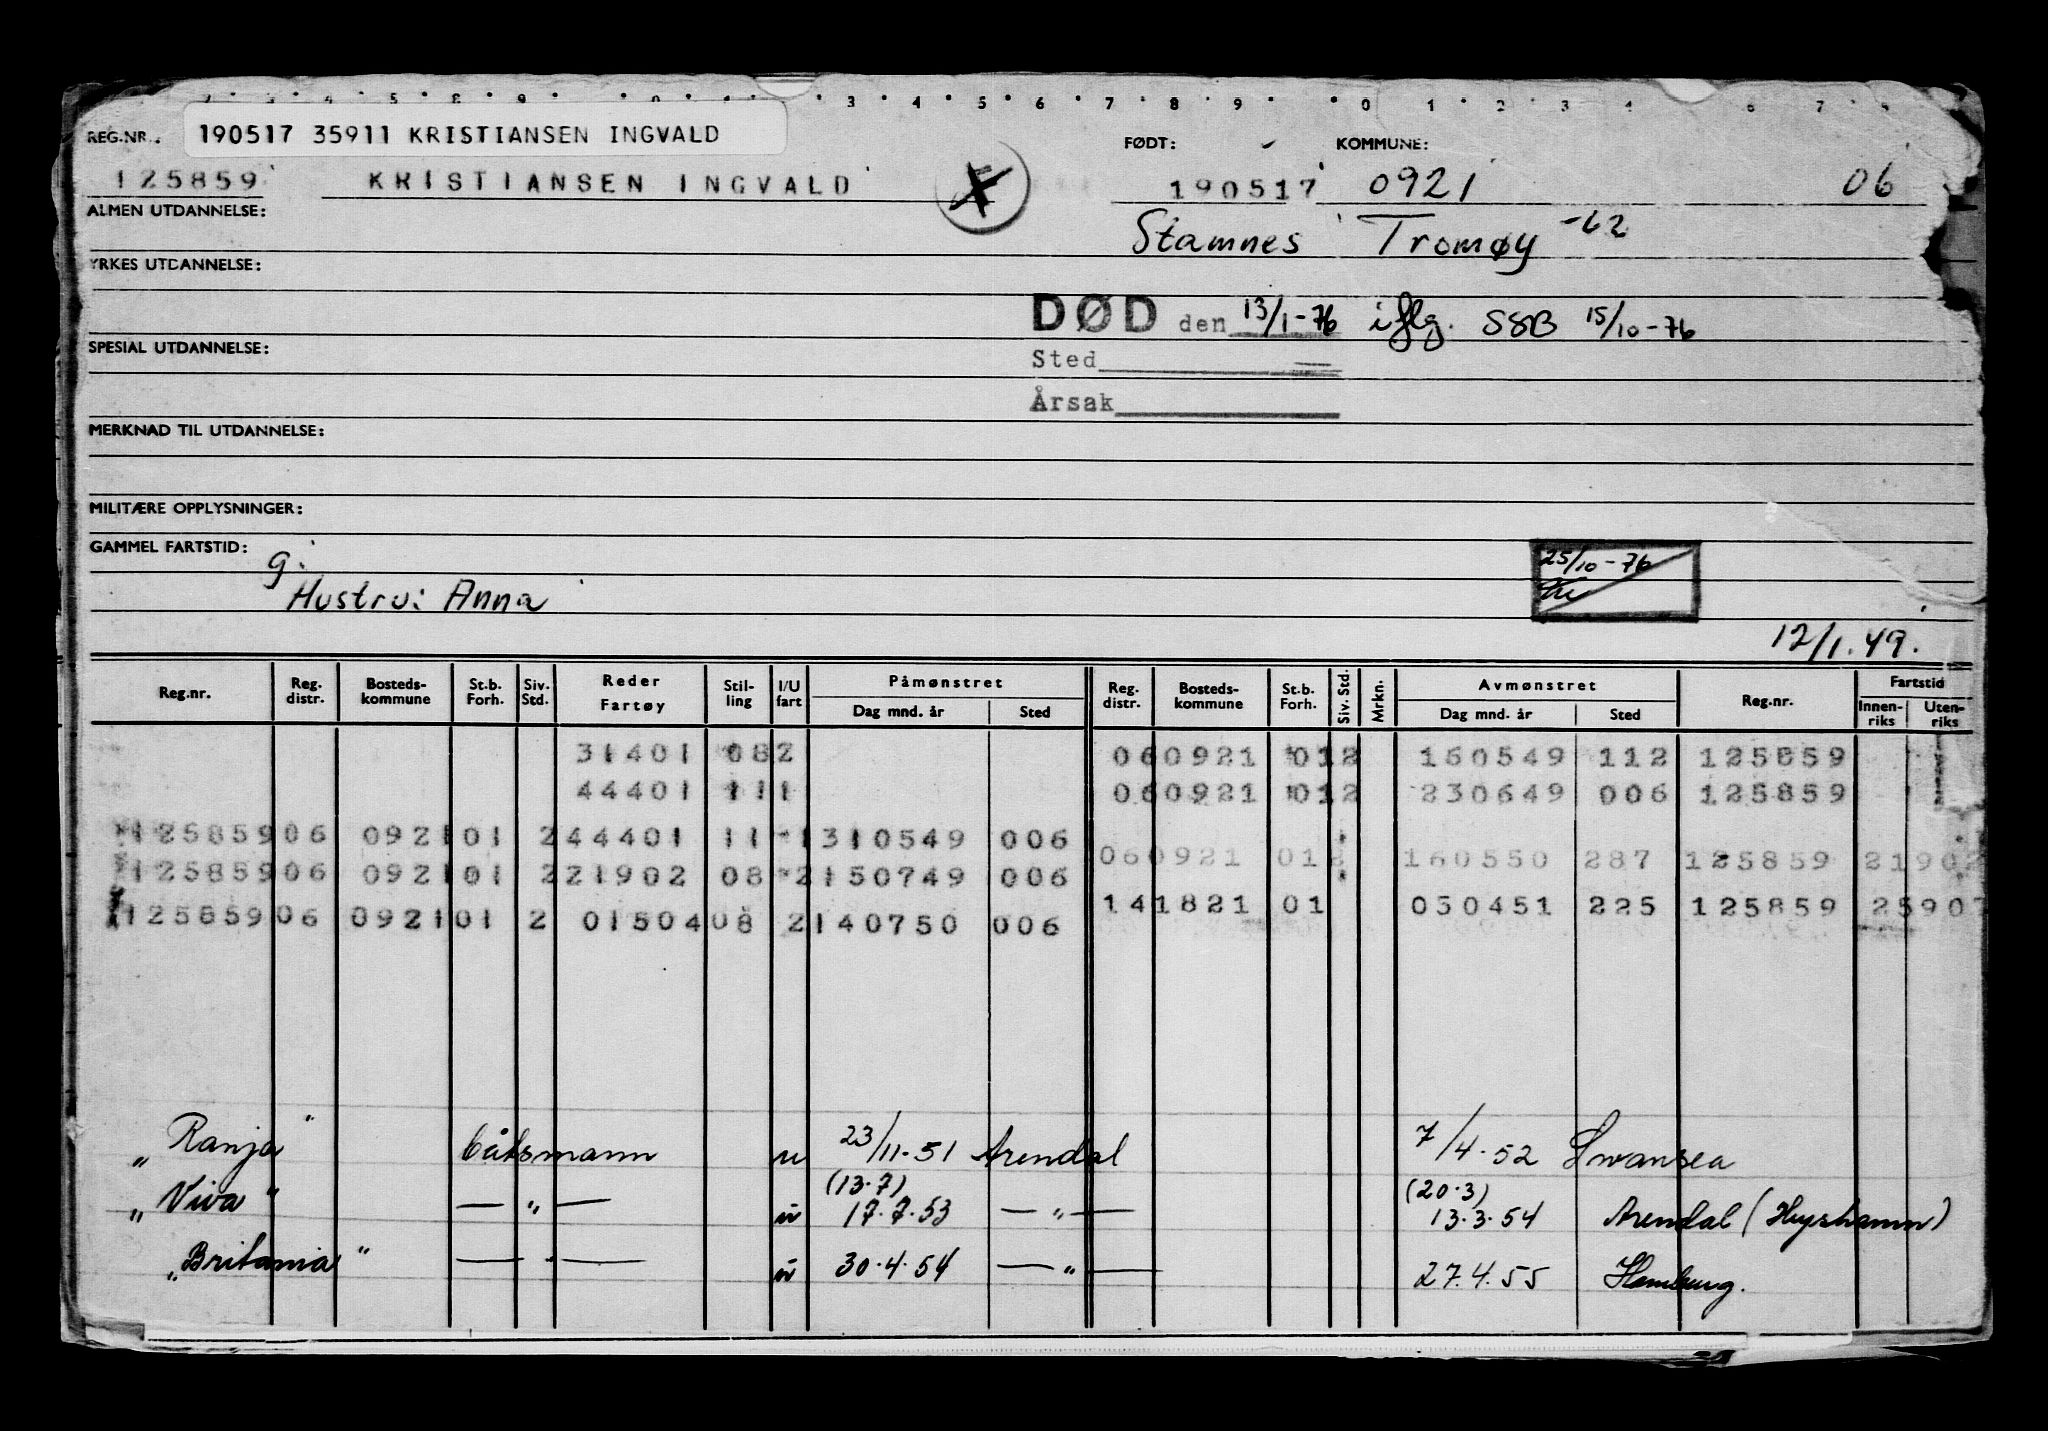 REG.NR. 190517 35911 KRISTIANSEN INGVALD FØDT: KOMMUNE:
125859 KRISTIANSEN INGVALD X 190517 0921 06
ALMEN UTDANNELSE: Stamnes Tromøy -62
YRKES UTDANNELSE:
DØD den 13/1-76 iflg. SSB 15/10-76
SPESIAL UTDANNELSE: Sted
Årsak
MERKNAD TIL UTDANNELSE:
MILITÆRE OPPLYSNINGER:
GAMMEL FARTSTID: g. 25/10-76
Hustru: Anna
12/1.49.
Reg.nr. Reg. distr. Bosteds-kommune St.b. Forh. Siv. Std. Reder Fartøy Stil-ling I/U fart Påmønstret Dag mnd. år Sted Reg. distr. Bosteds-kommune St.b. Forh. Siv. Std. Mrkn. Avmønstret Dag mnd. år Sted Reg.nr. Fartstid Innen-riks Uten-riks
31401 082 060921 012 160549 112 125859
44401 111 060921 012 230649 006 125859
125859 06 0921 01 2 44401 11 1 310549 006
060921 012 160550 287 125859 21902
125859 06 0921 01 2 21902 08 2 150749 006
141821 01 050451 225 125859 25907
125859 06 0921 01 2 01504 08 2 140750 006
"Ranja" båtsmann u 23/11.51 Arendal 7/4.52 Swansea
(13.7) (20.3)
"Viva" — " — u 17.7.53 — " — 13.3.54 Arendal (Heyshamn)
"Britania" — " — u 30.4.54 — " — 27.4.55 Hamburg.